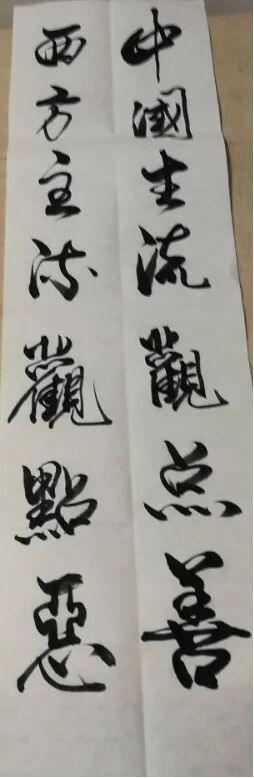 中國主流觀点善
西方主流觀點惡